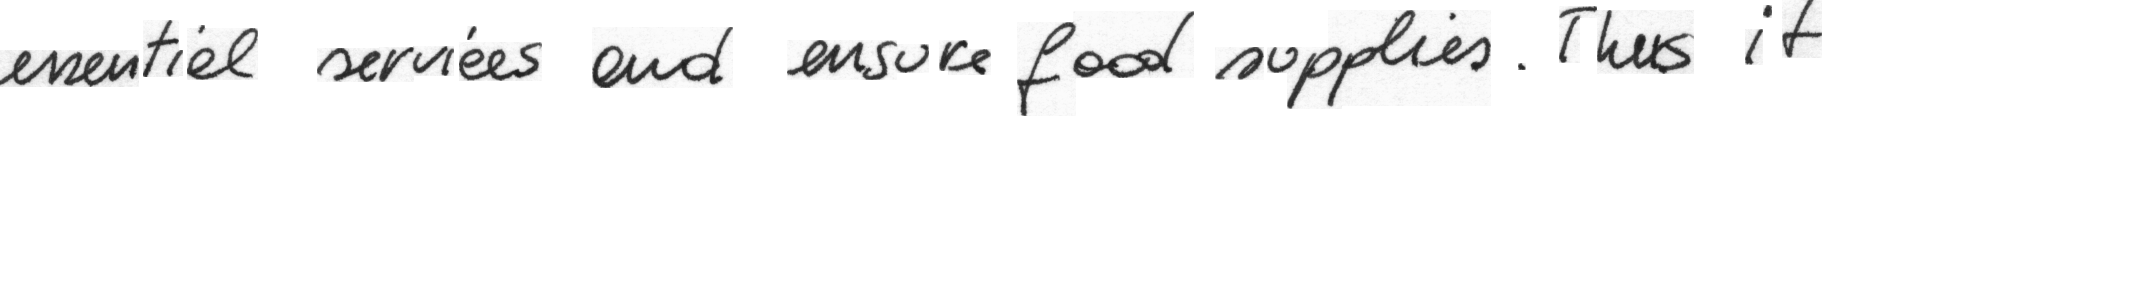 essential services and ensure food supplies. Thus it